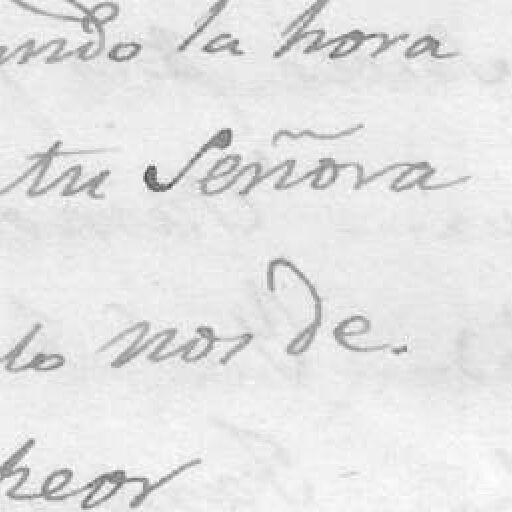 ando la hora
tu Señora
lo nos de.
peor